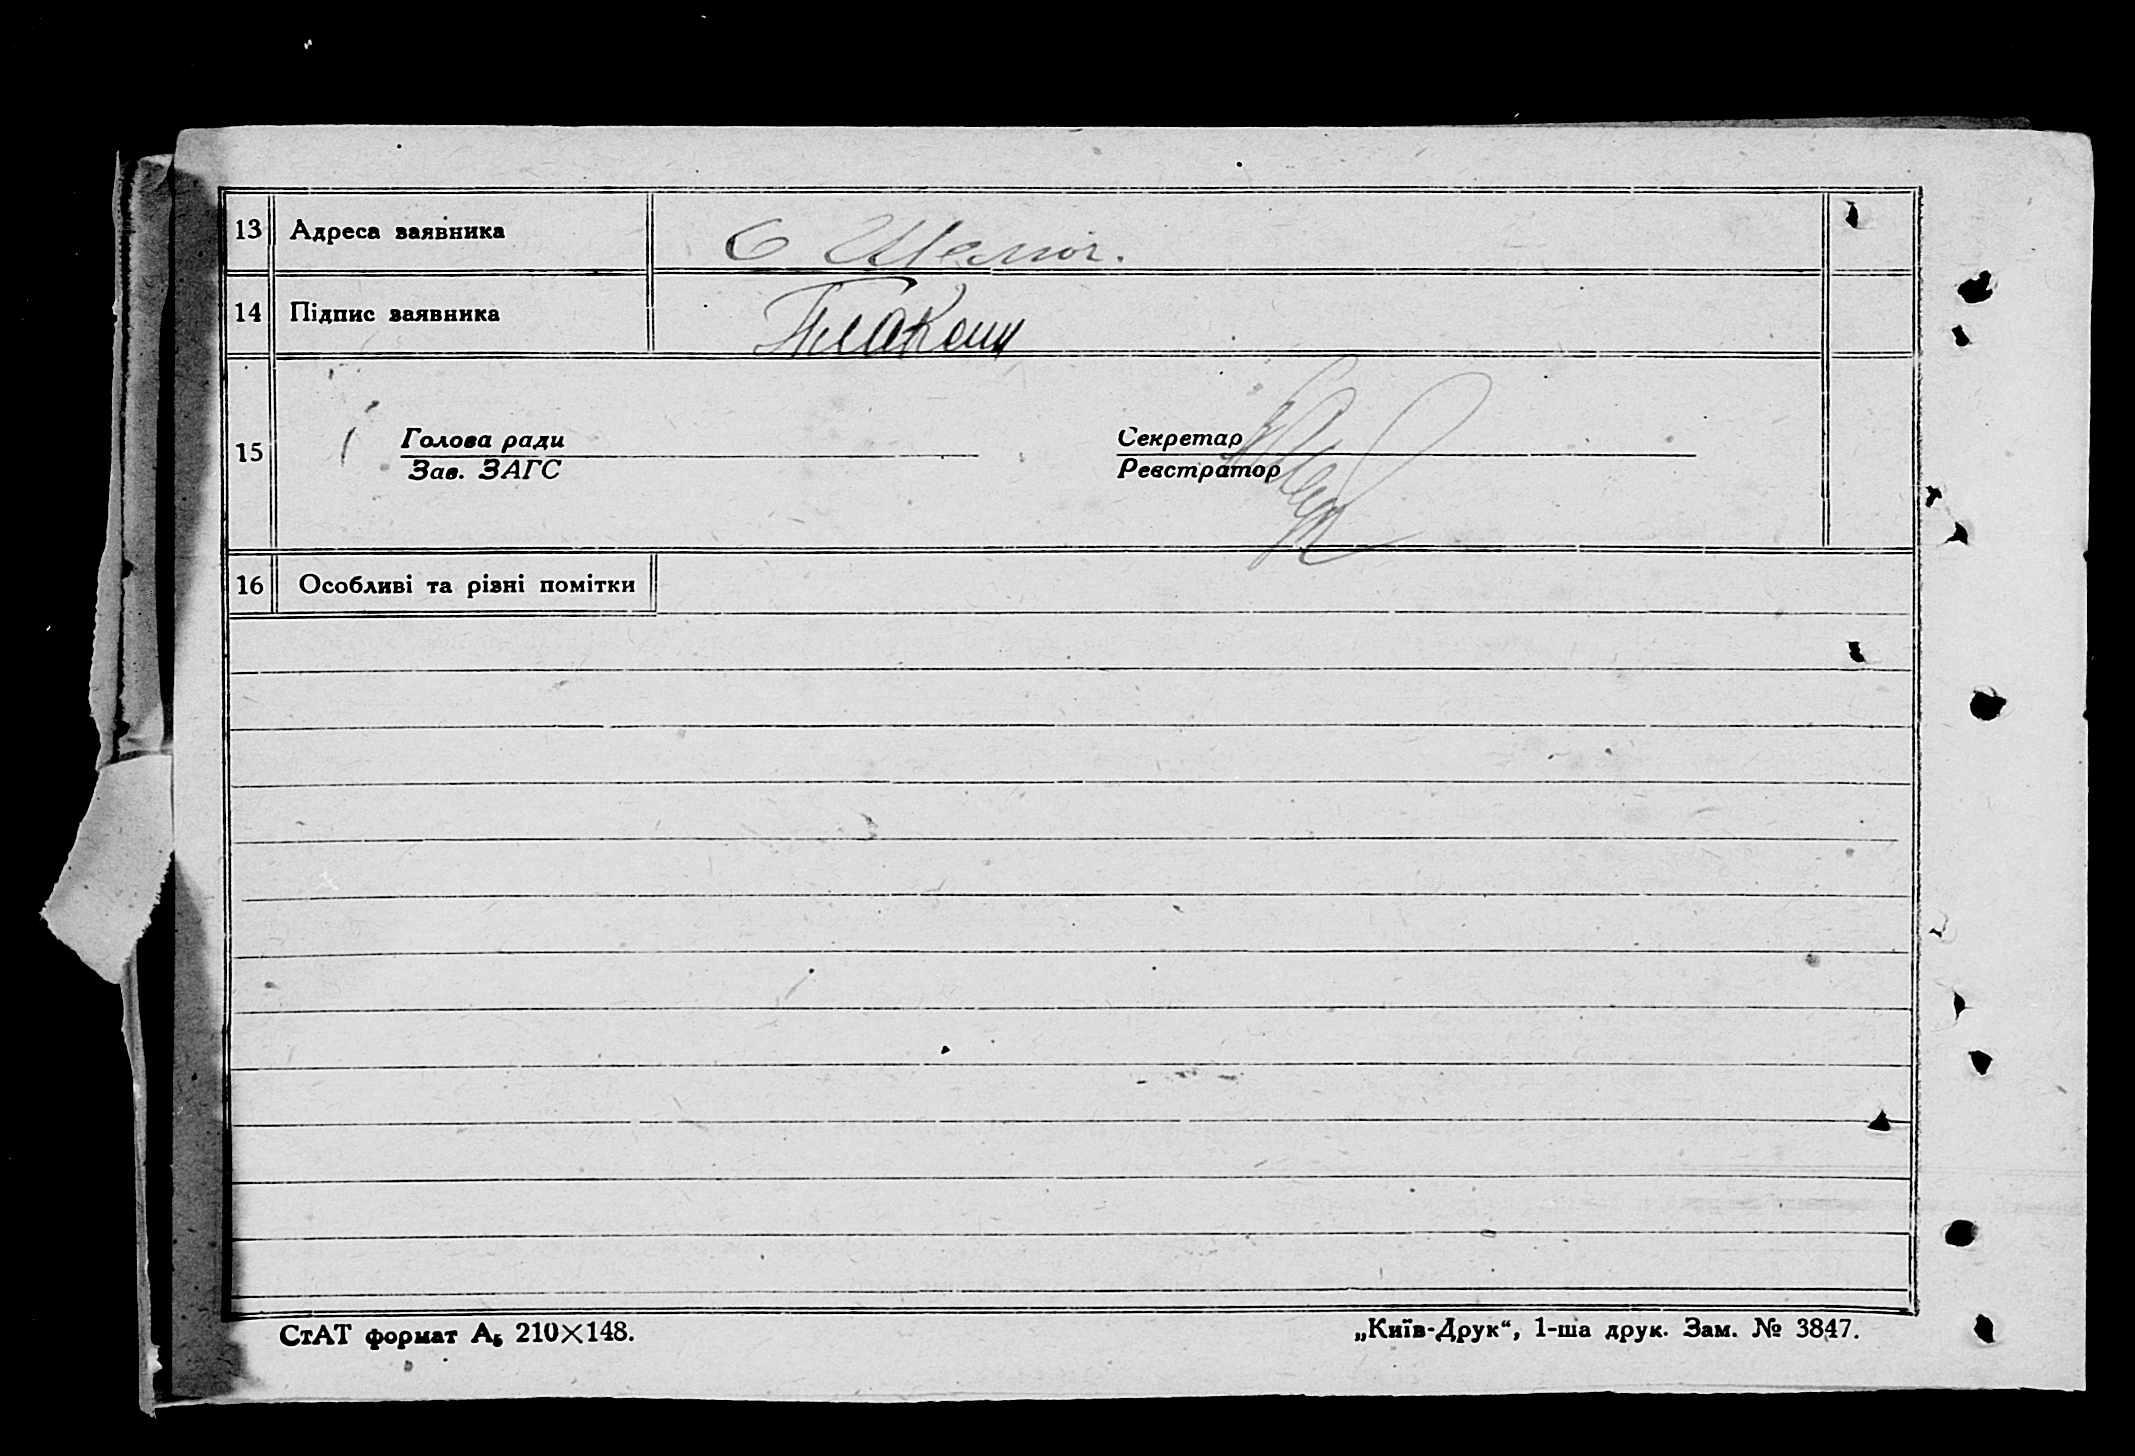 13 Адреса заявника С
14 Підпис заявника
15 Голова ради Секретар
Зав. ЗАГС Реєстратор
16 Особливі та різні помітки
СтАТ формат А₅ 210×148. „Київ-Друк“, 1-ша друк. Зам. № 3847.